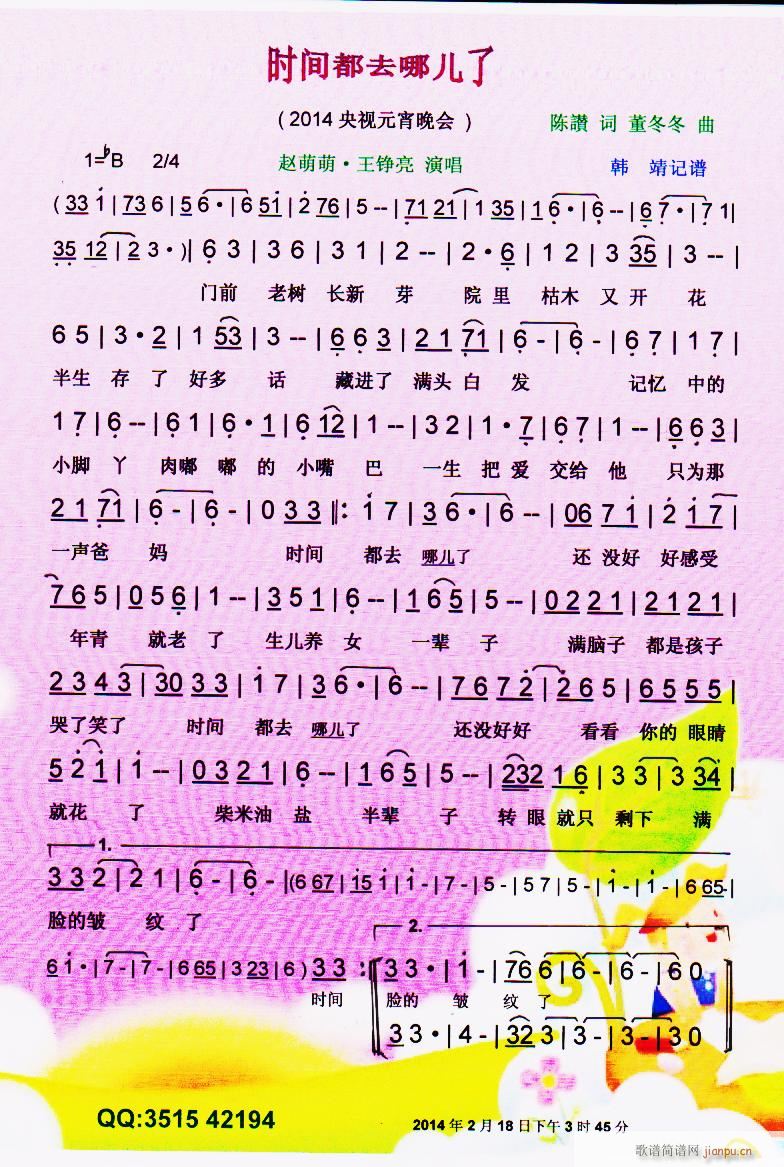 时间都去哪儿了
(2014央视元宵晚会)
陈讃 词 董冬冬 曲
1=♭B 2/4
赵萌萌·王铮亮 演唱
韩 靖记谱
(33 1|73 6|5 6·|6 51|2 76|5 --|71 21|1 35|16·|6 --|6 7·|7 1|
35 12|2 3·)|6 3|3 6|3 1|2 --|2·6|1 2|3 35|3 --|
门前 老树 长新 芽 院 里 枯木 又 开 花
6 5|3·2|1 53|3 --|6 6 3|2 1 71|6 -|6 -|6 7|1 7|
半生 存 了 好多 话 藏进了 满头 白 发 记忆 中的
1 7|6 --|6 1|6·1|6 12|1 --|3 2|1·7|6 7|1 --|6 6 3|
小脚 丫 肉嘟 嘟 的 小嘴 巴 一生 把 爱 交给 他 只为那
2 1 71|6 -|6 -|0 3 3‖: 1 7|3 6·|6 --|06 7 1|2 1 7|
一声爸 妈 时间 都去 哪儿了 还 没好 好感受
7 6 5|0 5 6|1 --|3 5 1|6 --|1 6 5|5 --|0 2 2 1|2 1 2 1|
年青 就老 了 生儿养 女 一辈 子 满脑子 都是孩子
2 3 4 3|30 3 3|1 7|3 6·|6 --|7 6 7 2|2 6 5|6 5 5 5|
哭了笑了 时间 都去 哪儿了 还没好好 看看 你的 眼睛
5 2 1|1 --|0 3 2 1|6 --|1 6 5|5 --|232 1 6|3 3|3 34|
就花 了 柴米油 盐 半辈 子 转眼就只 剩下 满
1.
3 3 2|2 1|6 -|6 -|(6 67|15 1|1 -|7 -|5 -|5 7|5 -|1 -|1 -|6 65-|
脸的皱 纹 了
2.
6 1·|7 -|7 -|6 65|3 23|6) 3 3 :‖3 3·|1 -|76 6|6 -|6 -|6 0
时间 脸的 皱 纹 了
3 3·|4 -|32 3|3 -|3 -|3 0
QQ:3515 42194
2014年2月18日下午3时45分
歌谱简谱网
jianpu.cn